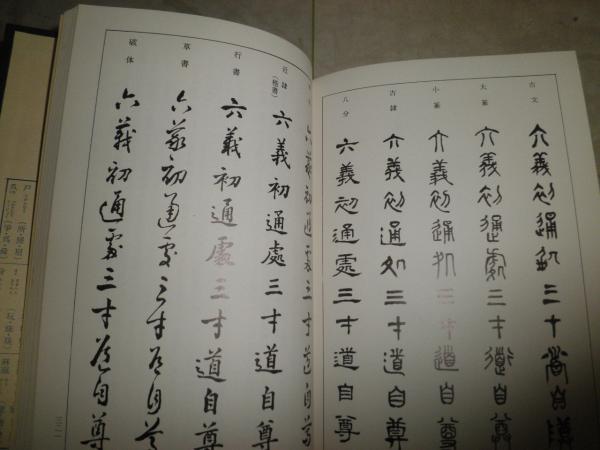 古文
六義初通處三才道自尊
大篆
六義初通處三才道自尊
小篆
六義初通處三才道自尊
古隷
六義初通処三才道自尊
八分
六義初通處三才道自尊
六義初通處三才道自尊
近隷
(楷書)
六義初通處三才道自尊
行書
六義初通處三才道自尊
草書
六義初通處三才道自尊
破体
六義初通處三才道自尊